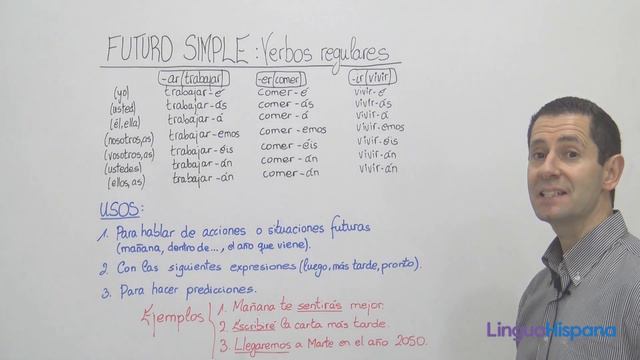 FUTURO SIMPLE: Verbos regulares
-ar (trabajar) -er (comer) -ir (vivir)
(yo) trabajar-é comer-é vivir-é
(usted) trabajar-ás comer-ás vivir-ás
(él, ella) trabajar-á comer-á vivir-á
(nosotros,as) trabajar-emos comer-emos vivir-emos
(vosotros,as) trabajar-éis comer-éis vivir-éis
(ustedes) trabajar-án comer-án vivir-án
(ellos,as) trabajar-án comer-án vivir-án
USOS:
1. Para hablar de acciones o situaciones futuras
(mañana, dentro de..., el año que viene).
2. Con las siguientes expresiones (luego, más tarde, pronto).
3. Para hacer predicciones.
Ejemplos
1. Mañana te sentirás mejor.
2. Escribiré la carta más tarde.
3. Llegaremos a Marte en el año 2050.
LinguaHispana